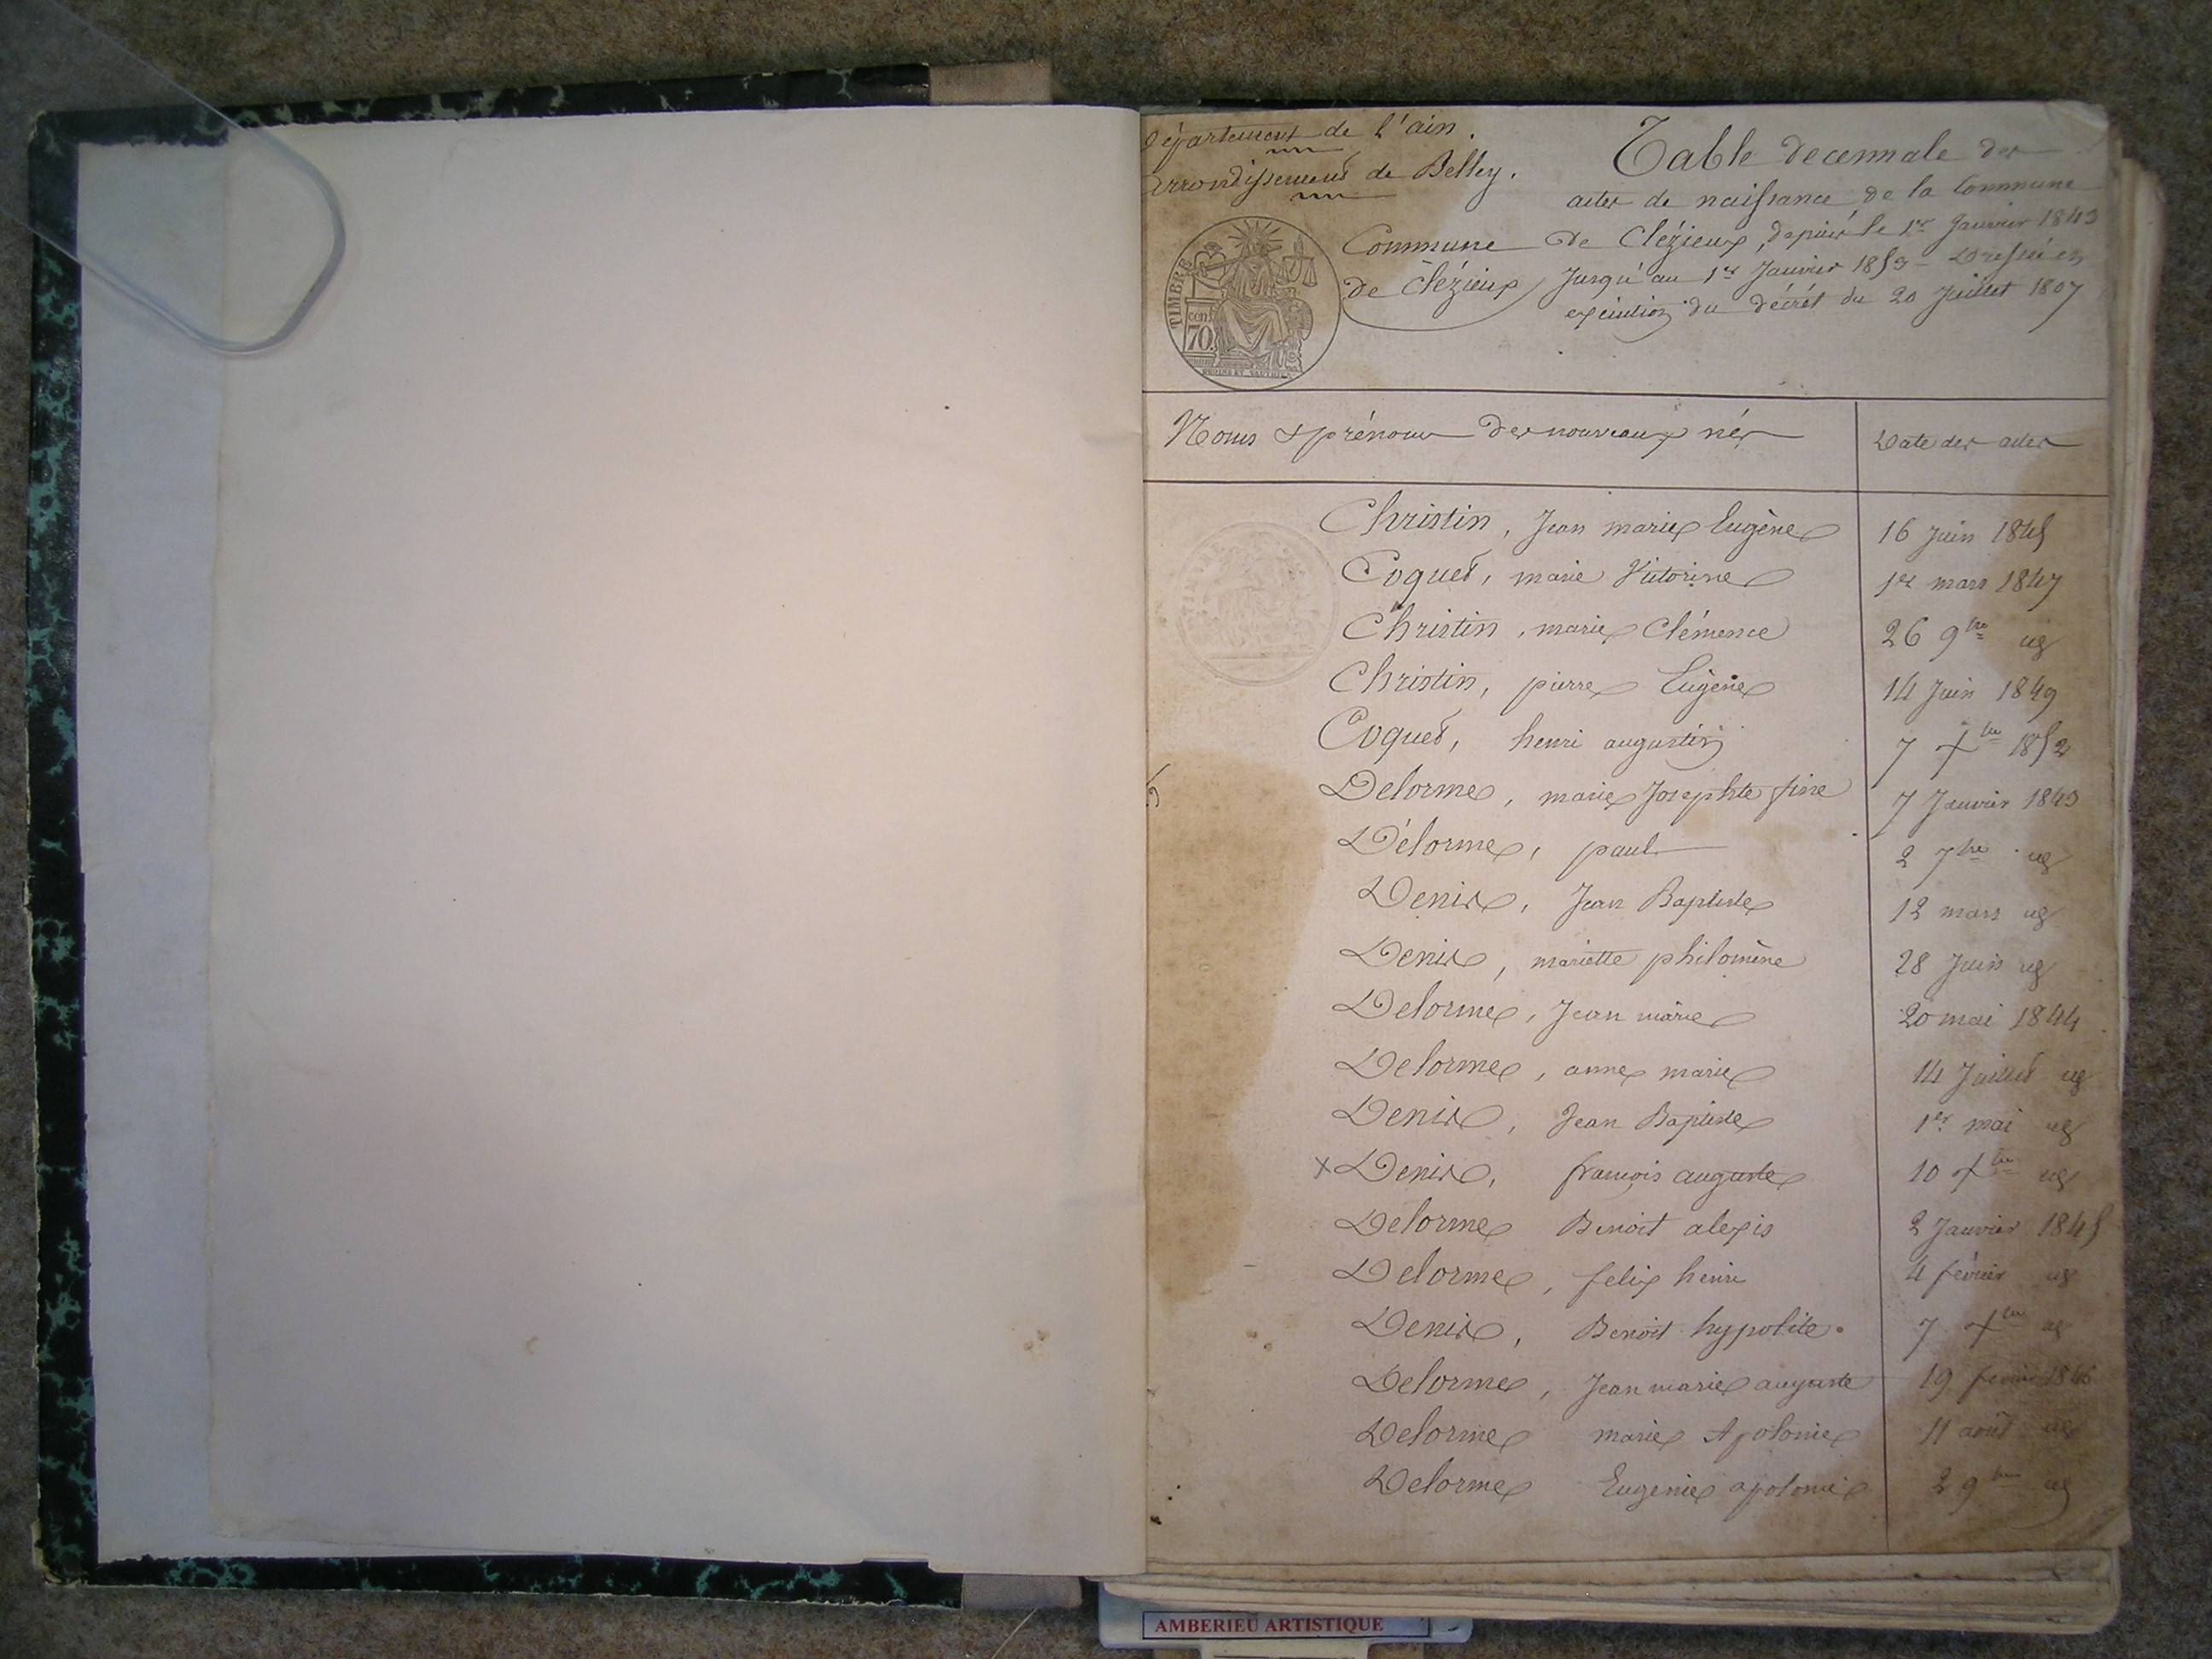 Département de l'ain.
arrondissement de Belley.
Commune
de Clézieux
TIMBRE
cen.
70.
Table decennale des
actes de naissance de la Commune
de Clézieux, depuis le 1er Janvier 1843
Jusqu'au 1er Janvier 1853 - Dressée en
exécution du décrét du 20 Juillet 1807
Noms & prénoms des nouveaux nés
Date des actes
Christin, Jean marie Eugène 16 Juin 1845
Coquet, marie Victorine 1er mars 1847
Christin, marie Clémence 26 9bre id
Christin, pierre Eugène 14 Juin 1849
Coquet, henri augustin 7 Xbre 1852
Delorme, marie Josephte fine 7 Janvier 1843
Délorme, paul 2 7bre id
Denis, Jean Baptiste 12 mars id
Denis, mariette philomène 28 Juin id
Delorme, Jean marie 20 mai 1844
Delorme, anne marie 14 Juillet id
Denis, Jean Baptiste 1er mai id
x Denis, francois auguste 10 Xbre id
Delorme Benoit alexis 2 Janvier 1845
Delorme, felix henri 4 février id
Denis, Benoit hypolite. 7 Xbre id
Delorme, Jean marie auguste 19 fevrier 1846
Delorme marie Apolonie 11 aout id
Delorme Eugenie apolonie 2 9bre id
AMBERIEU ARTISTIQUE